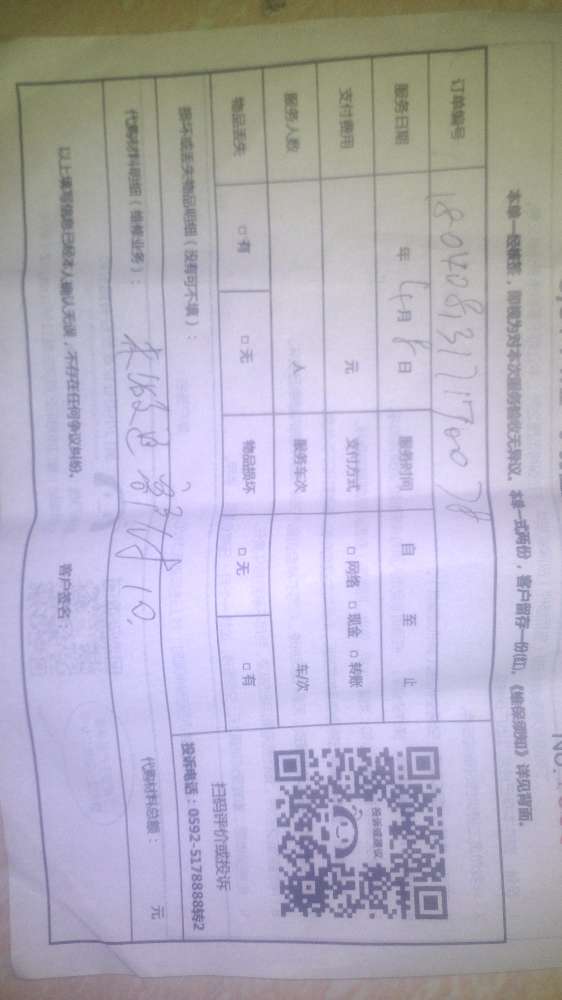 本单一经填签，即视为对本次服务验收无异议。本单一式两份，客户留存一份(红)，《维保须知》详见背面。
订单编号
服务日期 年 4月 8日 服务时间 自 至 止
支付费用 元 支付方式 □网络 □现金 □转账
服务人数 人 服务车次 车/次
物品丢失 □有 □无 物品损坏 □无 □有
损坏或丢失物品明细（没有可不填）：
代购材料明细（维修业务）：
代购材料总额： 元
以上填写信息已经本人确认无误，不存在任何争议纠纷。 客户签名：
投诉或建议
扫码评价或投诉
投诉电话：0592-5178888转2
NO.